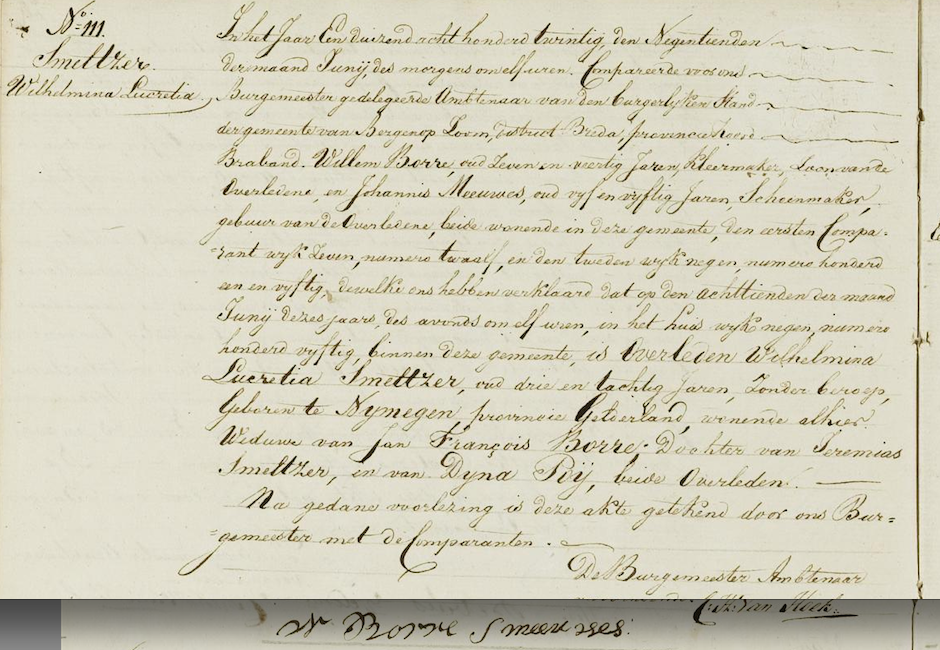 No. 111.
Smeltzer.
Wilhelmina Lucretia,
In het Jaar Een duizend acht honderd twintig, den Negentienden
der maand Junij, des morgens om elf uren. Compareerde voor ons
Burgemeester gedelegeerde Ambtenaar van den burgerlyken Stand
der gemeente van Bergen op Zoom, district Breda, provincie Noord
Braband. Willem Borre, oud Zeven en veertig Jaren, Kleermaker, Zoon van de
Overledene, en Johannis Meeuwes, oud vyf en vyftig Jaren, Schoenmaker,
gebuur van de Overledene, beide wonende in deze gemeente, den eersten Compa-
=rant wyk Zeven, numero twaalf, en den tweden wyk negen, numero honderd
een en vyftig, dewelke ons hebben verklaard dat op den achttienden der maand
Junij dezes jaars, des avonds om elf uren, in het huis wyk negen, numero
honderd vyftig, binnen deze gemeente, is Overleden Wilhelmina
Lucretia Smeltzer, oud drie en tachtig Jaren, Zonder beroep,
Geboren te Nymegen, provincie Gelderland, wonende alhier.
Weduwe van Jan François Borre; Dochter van Jeremias
Smeltzer, en van Dyna Pöy, beide Overleden.
Na gedane voorlezing is deze akte getekend door ons Bur=
=gemeester met de Comparanten.
De Burgemeester Ambtenaar
C. H. Van Hoek.
W Borre J meeuwes.